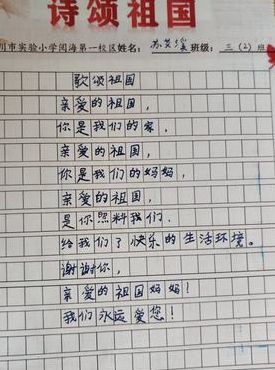 诗颂祖国
川市实验小学阅海第一校区姓名： 班级：三（2）班
歌颂祖国
亲爱的祖国，
你是我们的家，
亲爱的祖国，
你是我们的妈妈，
亲爱的祖国，
是你照料我们，
给我们了快乐的生活环境。
谢谢你，
亲爱的祖国妈妈！
我们永远爱您！